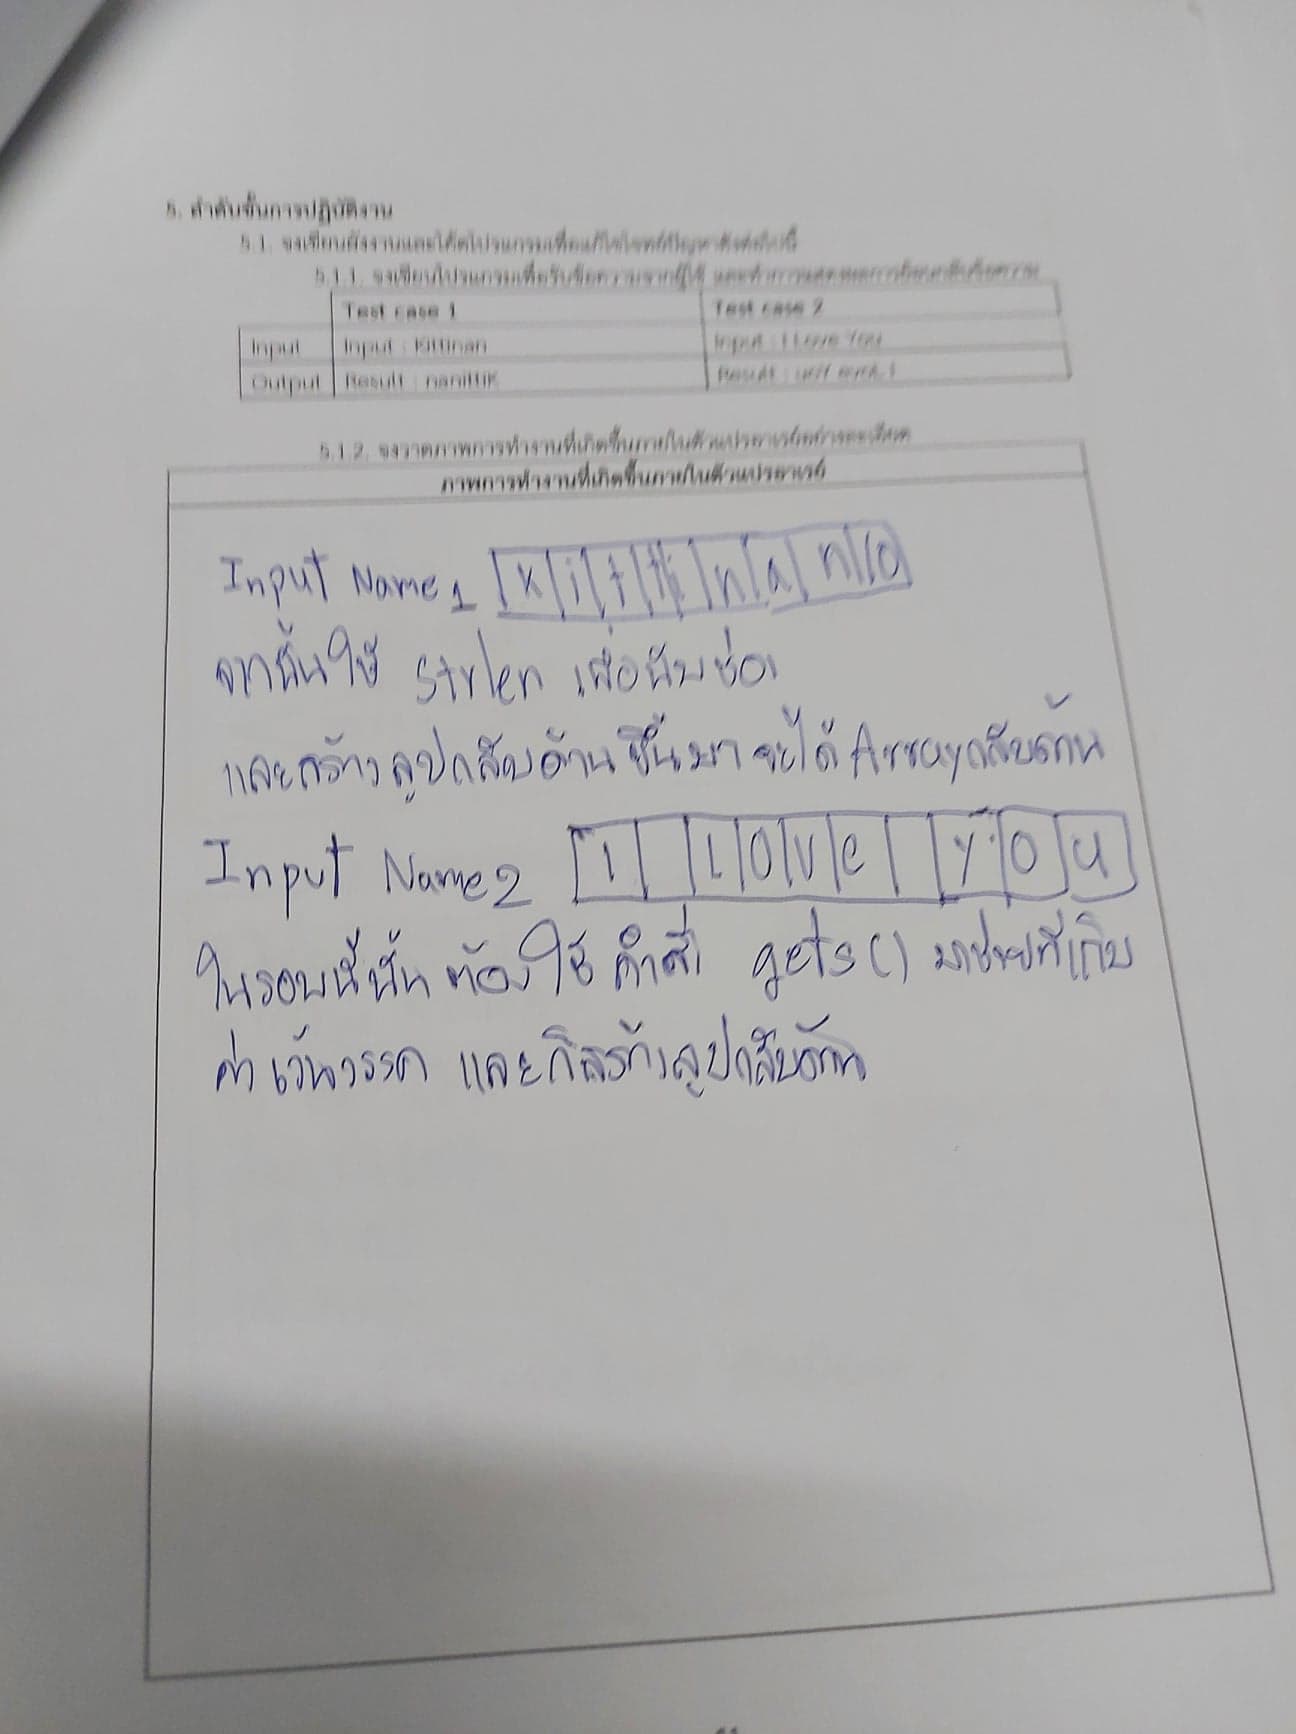 5. ลำดับขั้นการปฏิบัติงาน
5.1. จงเขียนผังงานและโค้ดโปรแกรมเพื่อแก้ไขโจทย์ปัญหาดังต่อไปนี้
5.1.1. จงเขียนโปรแกรมเพื่อรับข้อความจากผู้ใช้ และทำการแสดงผลการย้อนกลับข้อความ
Test case 1 Test case 2
Input Input : Kittinan Input : I Love You
Output Result : nanittiK Result : uoY evoL I
5.1.2. จงวาดภาพการทำงานที่เกิดขึ้นภายในตัวแปรอาเรย์อย่างละเอียด
ภาพการทำงานที่เกิดขึ้นภายในตัวแปรอาเรย์
Input Name1 K i t t i n a n \0
จากนั้นใช้ Strlen เพื่อนับช่อง
และสร้างลูปกลับด้านขึ้นมา จะได้ Arrayกลับด้าน
Input Name2 I L O V e y o u
ในรอบนี้นั้น ต้องใช้ คำสั่ง gets() มาช่วยที่เก็บ
ค่าเว้นวรรค และก็สร้างลูปกลับด้าน